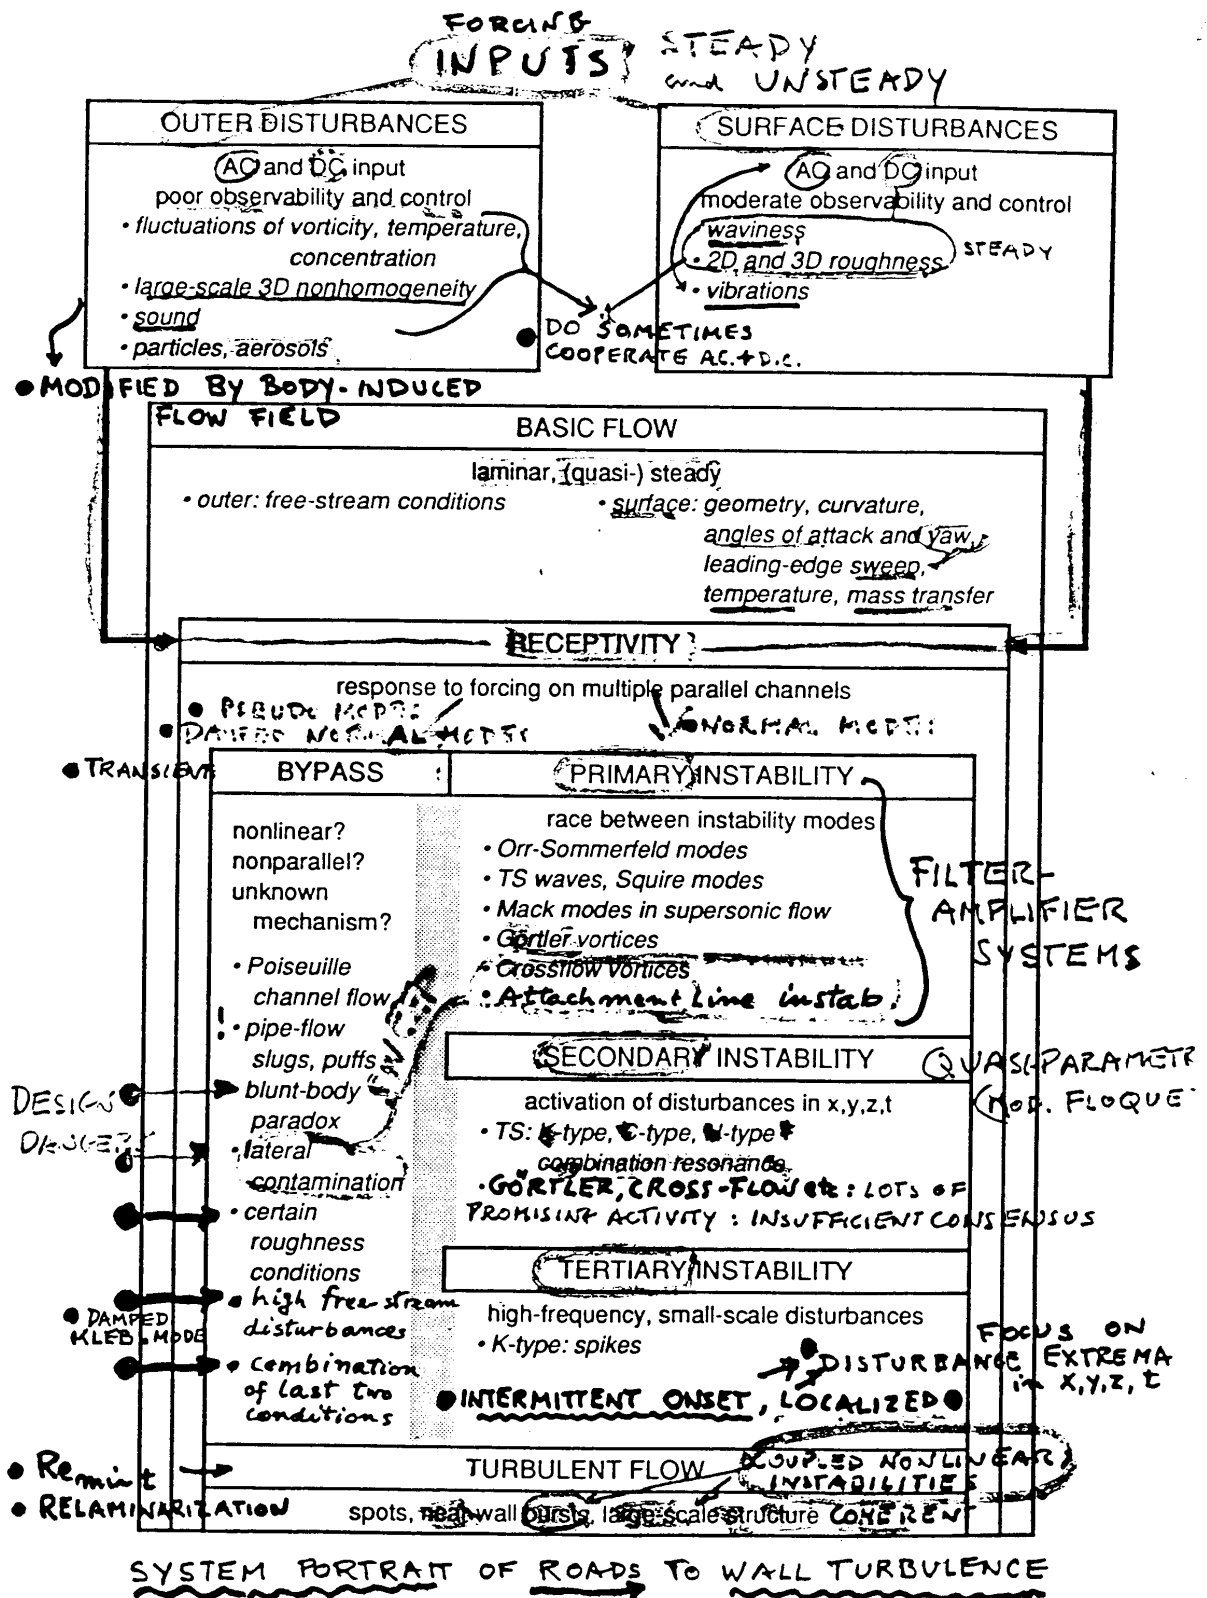 FORCING
INPUTS; STEADY
and UNSTEADY
OUTER DISTURBANCES
AC and DC input
poor observability and control
• fluctuations of vorticity, temperature,
concentration
• large-scale 3D nonhomogeneity
• sound
• particles, aerosols
SURFACE DISTURBANCES
AC and DC input
moderate observability and control
• waviness
• 2D and 3D roughness
STEADY
• vibrations
• DO SOMETIMES
COOPERATE AC.+D.C.
• MODIFIED BY BODY-INDUCED
FLOW FIELD
BASIC FLOW
laminar, (quasi-) steady
• outer: free-stream conditions
• surface: geometry, curvature,
angles of attack and yaw,
leading-edge sweep,
temperature, mass transfer
RECEPTIVITY
response to forcing on multiple parallel channels
• NORMAL MODES
• TRANSIENT
BYPASS
nonlinear?
nonparallel?
unknown
mechanism?
• Poiseuille
channel flow
! • pipe-flow
slugs, puffs
• blunt-body
paradox
• lateral
contamination
• certain
roughness
conditions
• high free stream
disturbances
• combination
of last two
conditions
DESIGN
• DAMPED
KLEB. MODE
PRIMARY INSTABILITY
race between instability modes
• Orr-Sommerfeld modes
• TS waves, Squire modes
• Mack modes in supersonic flow
• Görtler vortices
• Crossflow vortices
• Attachment Line instab.
FILTER-
AMPLIFIER
SYSTEMS
SECONDARY INSTABILITY
QUASI-PARAMETR
activation of disturbances in x,y,z,t
• TS: K-type, C-type, H-type
combination resonance
• GÖRTLER, CROSS-FLOW etc: LOTS OF
PROMISING ACTIVITY: INSUFFICIENT CONSENSUS
TERTIARY INSTABILITY
high-frequency, small-scale disturbances
• K-type: spikes
FOCUS ON
• DISTURBANCE EXTREMA
in x,y,z,t
• INTERMITTENT ONSET, LOCALIZED •
• Re min t
• RELAMINARIZATION
TURBULENT FLOW
COUPLED NONLINEAR
INSTABILITIES
spots, near-wall bursts, large-scale structure COHERENT
SYSTEM PORTRAIT OF ROADS TO WALL TURBULENCE